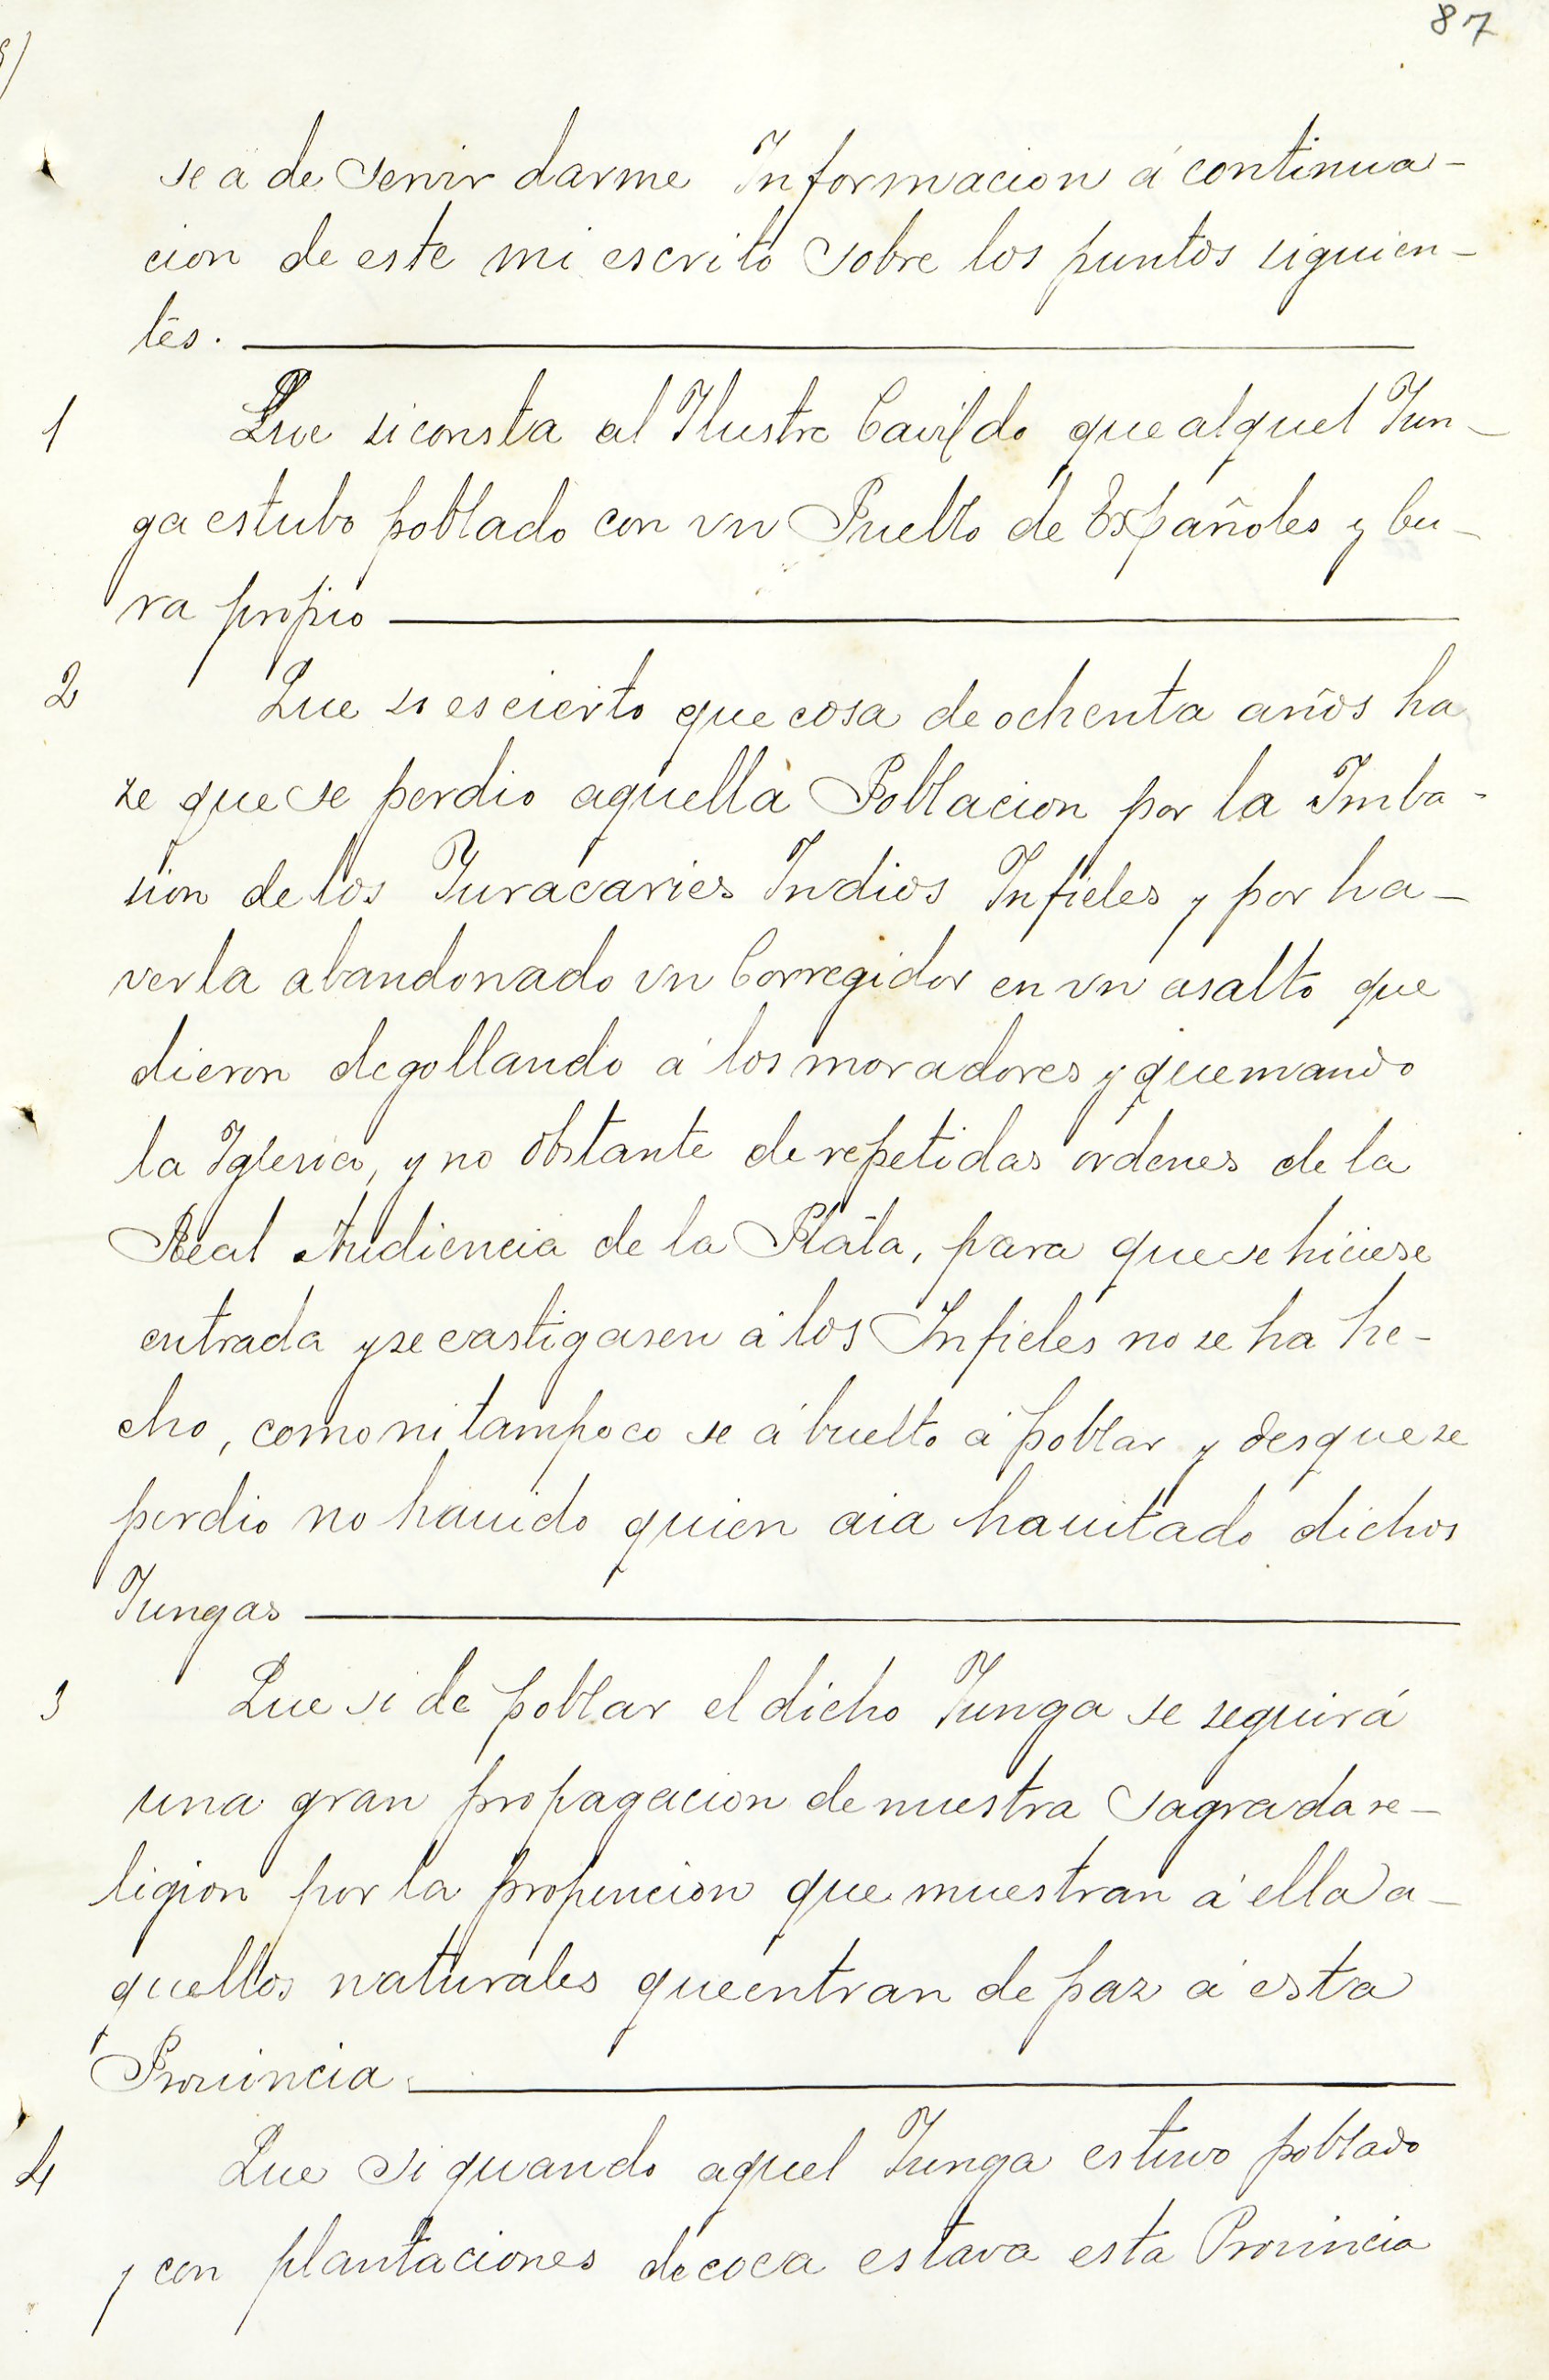 87
se a de servir darme Informacion á continua-
cion de este mi escrito sobre los puntos siguien-
tes.
1 Que si consta al Ilustre Cavildo que alquel Yun-
ga estubo poblado con vn Pueblo de Españoles y Cu-
ra propio
2 Que si es cierto que cosa de ochenta años ha
ze que se perdio aquella Poblacion por la Imba-
sion de los Yuracaries Indios Infieles y por ha-
verla abandonado vn Corregidor en vn asalto que
dieron degollando á los moradores y quemando
la Iglesia, y no obstante de repetidas ordenes de la
Real Audiencia de la Plata, para que se hiciese
entrada y se castigasen á los Infieles no se ha he-
cho, como ni tampoco se á buelto á poblar y desque se
perdio no hauido quien aia hauitado dichos
Yungas
3 Que si de poblar el dicho Yunga se seguirá
una gran propagacion de nuestra sagrada re-
ligion por la propencion que muestran á ella a-
quellos naturales que entran de paz á esta
Prouincia.
4 Que si quando aquel Yunga estuvo poblado
y con plantaciones de coca estava esta Prouincia